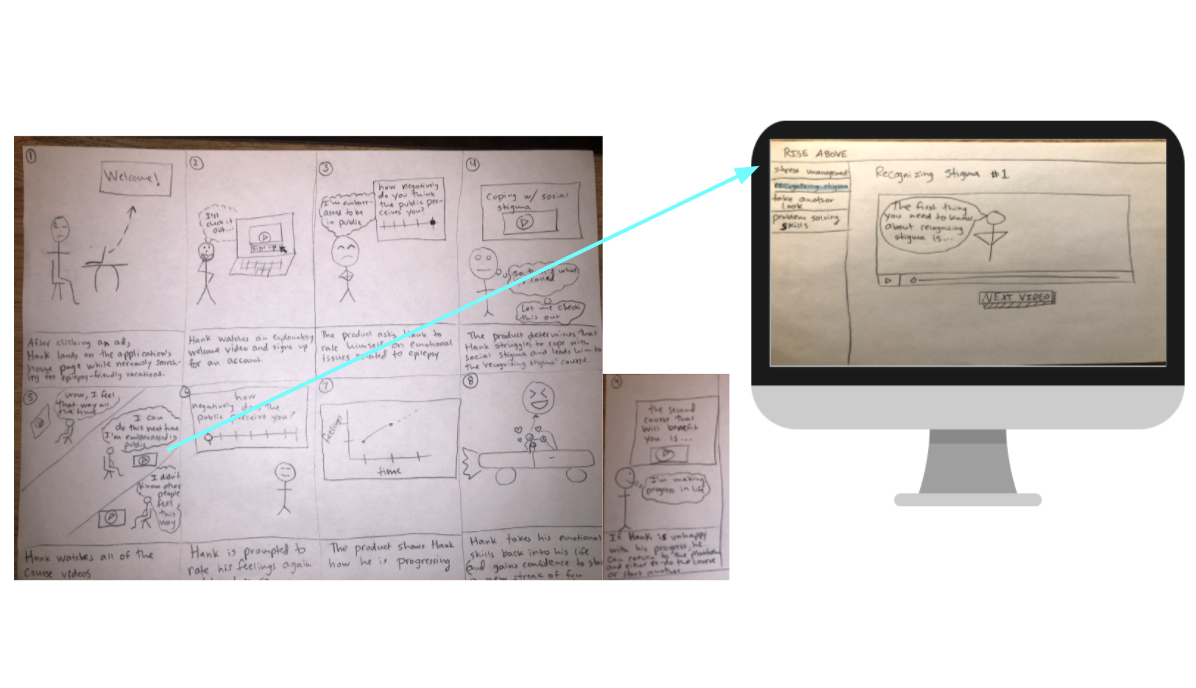 1
Welcome!
After clicking an ad,
Hank lands on the application's
home page while nervously search-
ing for epilepsy-friendly vacations.
2
I'll
check it
out...
Sign up
Hank watches an explanatory
welcome video and signs up
for an account.
3
I'm embarr-
assed to be
in public
how negatively
do you think
the public per-
ceives you?
The product asks Hank to
rate himself on emotional
issues related to epilepsy
4
Coping w/ social
stigma
So that's what
it's called
Let me check
this out
The product determines that
Hank struggles to cope with
social stigma and leads him to
the 'recognizing stigma' course.
5
wow, I feel
that way all
the time
I can
do this next time
I'm embarrassed in
public
I didn't
know other
people
feel
this
way
Hank watches all of the
course videos
6
how
negatively does the
public perceive you?
Hank is prompted to
rate his feelings again
7
feelings
time
The product shows Hank
how he is progressing
8
Hank takes his emotional
skills back into his life
and gains confidence to start
a new streak of fun
9
the second
course that
will benefit
you is...
I'm making
progress in life
If Hank is unhappy
with his progress, he
can return to the platform
and either re-do the course
or start another
RISE ABOVE
stress management
recognizing stigma
take another
look
problem solving
skills
Recognizing Stigma #1
The first thing
you need to know
about recognizing
stigma is...
NEXT VIDEO